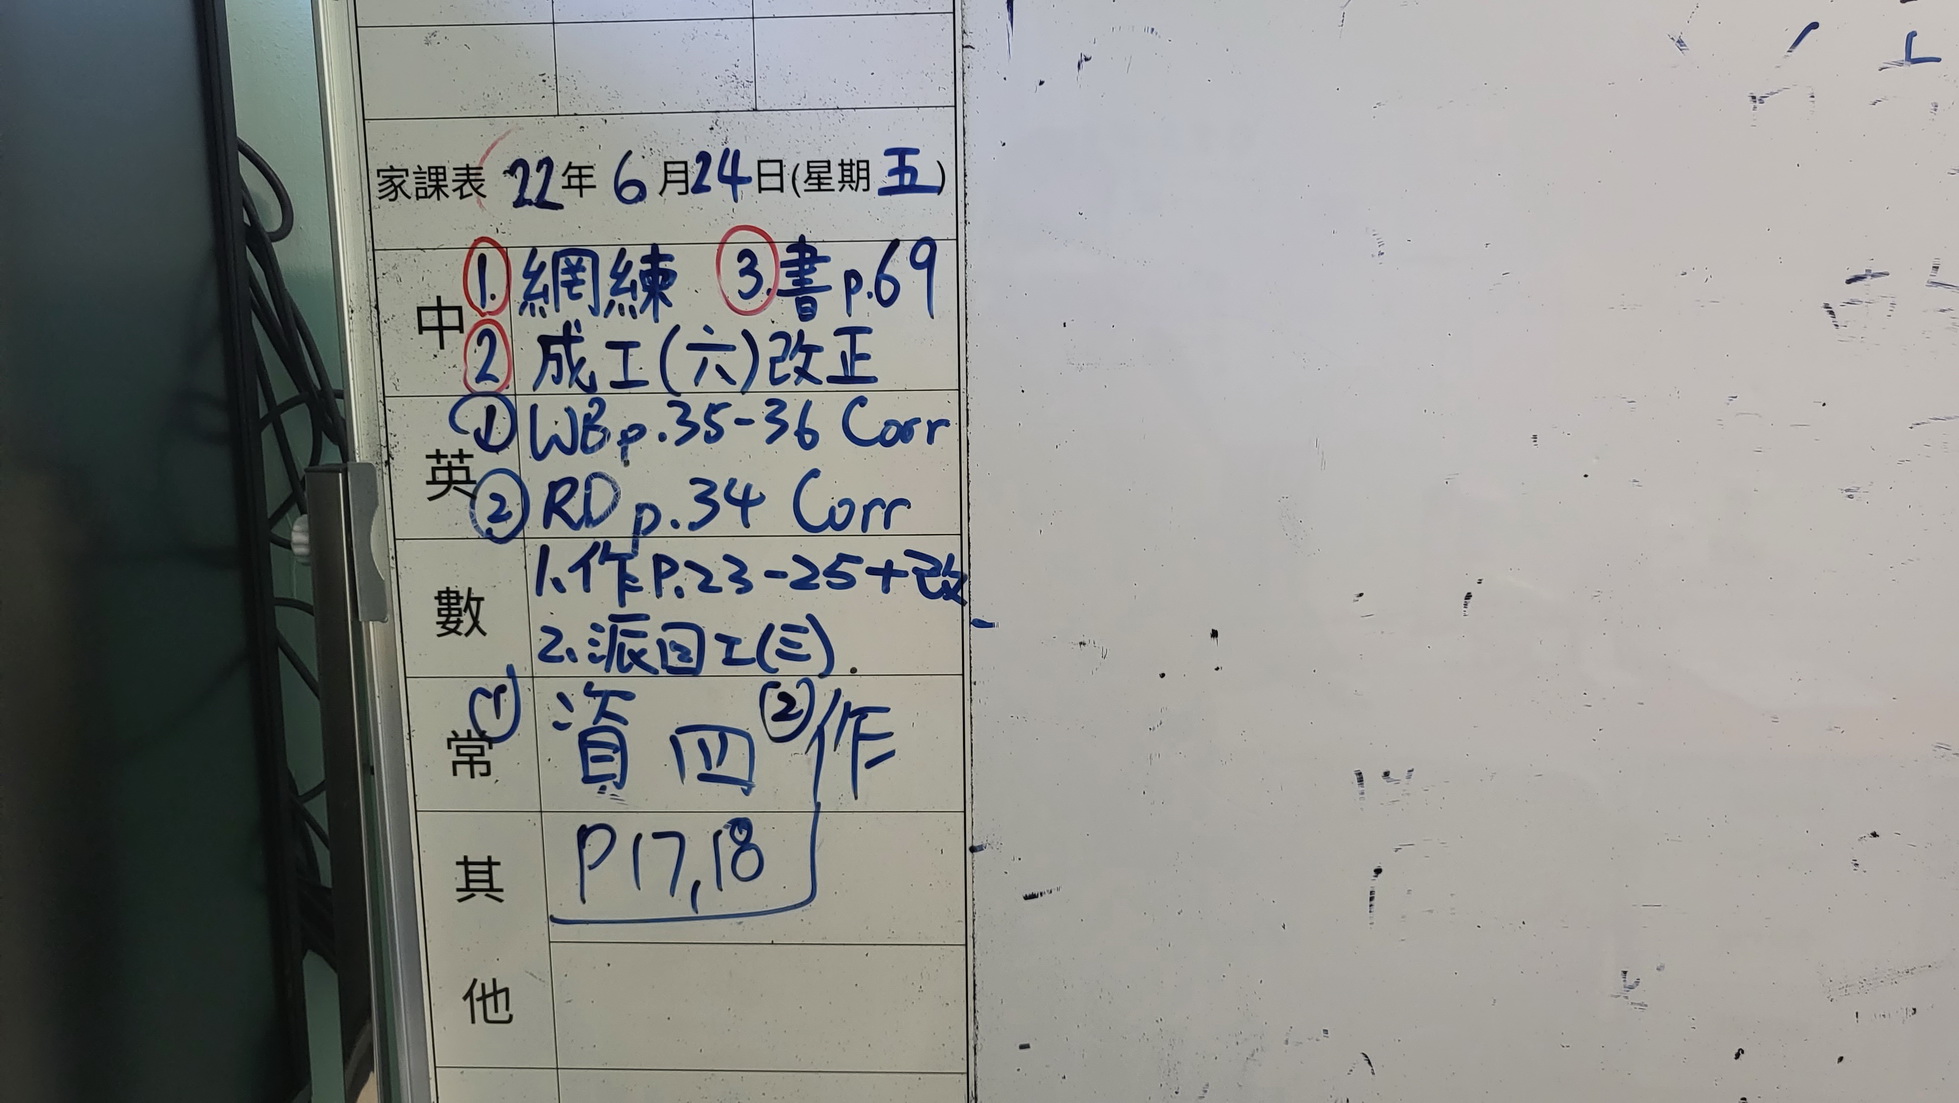 家課表 22年 6月24日(星期五)
中 1. 網練 3. 書 p.69
2 成工(六)改正
英 ① WB p.35-36 Corr
② RD p.34 Corr
數 1. 作P.23-25+改
2. 派回工(三).
常 ① 資四 ② 作
P17,18
其
他